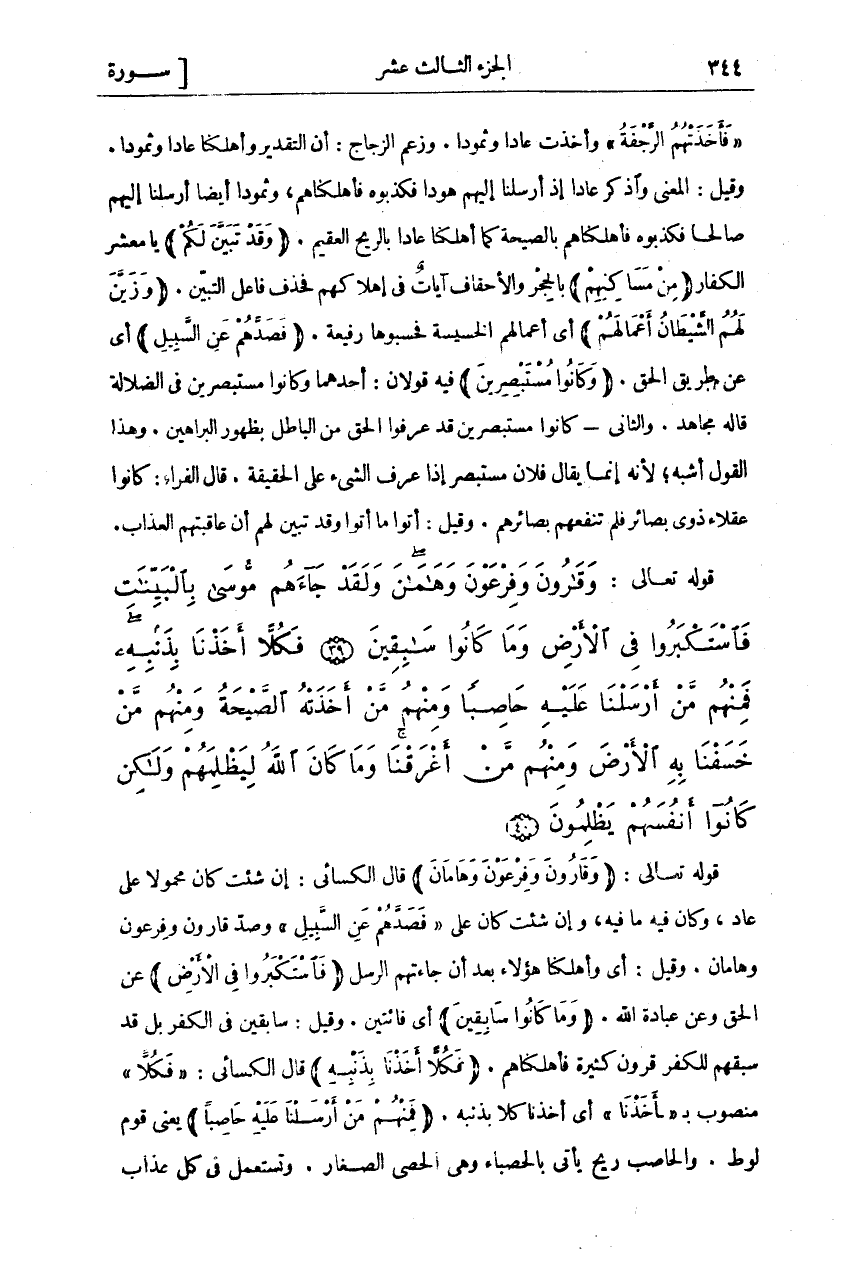 ٣٤٤ الجزء الثالث عشر [ ســورة
« فَأَخَذَتْهُمُ الرَّجْفَةُ » وأخذت عادا وثمودا . وزعم الزجاج : أن التقدير وأهلكنا عادا وثمودا .
وقيل : المعنى وآذكر عادا إذ أرسلنا إليهم هودا فكذبوه فأهلكناهم، وثمودا أيضا أرسلنا إليهم
صالحا فكذبوه فأهلكناهم بالصيحة كما أهلكنا عادا بالريح العقيم . ﴿ وَقَدْ تَبَيَّنَ لَكُمْ ﴾ يا معشر
الكفار ﴿ مِنْ مَسَاكِنِهِمْ ﴾ بالحِجْر والأحقاف آياتٌ فى إهلاكهم فحذف فاعل التبيّن . ﴿ وَزَيَّنَ
لَهُمُ الشَّيْطَانُ أَعْمَالَهُمْ ﴾ أى أعمالهم الخسيسة فحسبوها رفيعة . ﴿ فَصَدَّهُمْ عَنِ السَّبِيلِ ﴾ أى
عن طريق الحق . ﴿ وَكَانُوا مُسْتَبْصِرِينَ ﴾ فيه قولان : أحدهما وكانوا مستبصرين فى الضلالة
قاله مجاهد . والثانى — كانوا مستبصرين قد عرفوا الحق من الباطل بظهور البراهين . وهذا
القول أشبه؛ لأنه إنمــا يقال فلان مستبصر إذا عرف الشىء على الحقيقة . قال الفراء: كانوا
عقلاء ذوى بصائر فلم تنفعهم بصائرهم . وقيل : أتوا ما أتوا وقد تبين لهم أن عاقبتهم العذاب.
قوله تعــالى : وَقَٰرُونَ وَفِرْعَوْنَ وَهَٰمَٰنَ ۖ وَلَقَدْ جَآءَهُم مُّوسَىٰ بِٱلْبَيِّنَٰتِ
فَٱسْتَكْبَرُوا فِى ٱلْأَرْضِ وَمَا كَانُوا سَٰبِقِينَ ﴿٣٩﴾ فَكُلًّا أَخَذْنَا بِذَنۢبِهِۦ ۖ
فَمِنْهُم مَّنْ أَرْسَلْنَا عَلَيْهِ حَاصِبًا وَمِنْهُم مَّنْ أَخَذَتْهُ ٱلصَّيْحَةُ وَمِنْهُم مَّنْ
خَسَفْنَا بِهِ ٱلْأَرْضَ وَمِنْهُم مَّنْ أَغْرَقْنَا ۚ وَمَا كَانَ ٱللَّهُ لِيَظْلِمَهُمْ وَلَٰكِن
كَانُوٓا أَنفُسَهُمْ يَظْلِمُونَ ﴿٤٠﴾
قوله تعــالى : ﴿ وَقَارُونَ وَفِرْعَوْنَ وَهَامَانَ ﴾ قال الكسائى : إن شئت كان محمولا على
عاد ، وكان فيه ما فيه، وإن شئت كان على « فَصَدَّهُمْ عَنِ السَّبِيلِ » وصدّ قارون وفرعون
وهامان . وقيل : أى وأهلكنا هؤلاء بعد أن جاءتهم الرسل ﴿ فَٱسْتَكْبَرُوا فِى الْأَرْضِ ﴾ عن
الحق وعن عبادة الله . ﴿ وَمَا كَانُوا سَابِقِينَ ﴾ أى فائتين . وقيل : سابقين فى الكفر بل قد
سبقهم للكفر قرون كثيرة فأهلكناهم . ﴿ فَكُلًّا أَخَذْنَا بِذَنْبِــهِ ﴾ قال الكسائى : « فَكُلًّا »
منصوب بـ « ـأَخَذْنَا » أى أخذنا كلا بذنبه . ﴿ فَمِنْهُــمْ مَنْ أَرْسَــلْنَا عَلَيْهِ حَاصِبًا ﴾ يعنى قوم
لوط . والحاصب ريح يأتى بالحصباء وهى الحصى الصــغار . وتستعمل فى كل عذاب